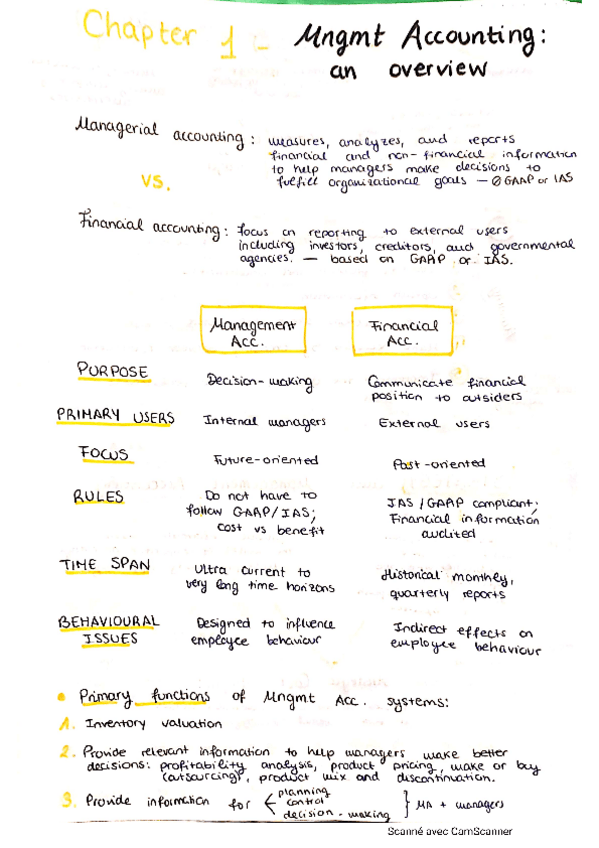 Chapter 1 - Mngmt Accounting:
an overview
Managerial accounting: measures, analyzes, and reports
financial and non-financial information
to help managers make decisions to
fulfill organizational goals — Ø GAAP or IAS
VS.
Financial accounting: focus on reporting to external users
including investors, creditors, and governmental
agencies. — based on GAAP or IAS.
Management Acc.
Financial Acc.
PURPOSE
Decision-making
Communicate financial
position to outsiders
PRIMARY USERS
Internal managers
External users
FOCUS
Future-oriented
Past-oriented
RULES
Do not have to
follow GAAP/IAS;
cost vs benefit
IAS / GAAP compliant;
Financial information
audited
TIME SPAN
Ultra current to
very long time horizons
Historical monthly,
quarterly reports
BEHAVIOURAL
ISSUES
Designed to influence
employee behaviour
Indirect effects on
employee behaviour
• Primary functions of Mngmt Acc. systems:
1. Inventory valuation
2. Provide relevant information to help managers make better
decisions: profitability analysis, product pricing, make or buy
(outsourcing), product mix and discontinuation.
3. Provide information for < planning
control
decision-making } MA + managers
Scanné avec CamScanner